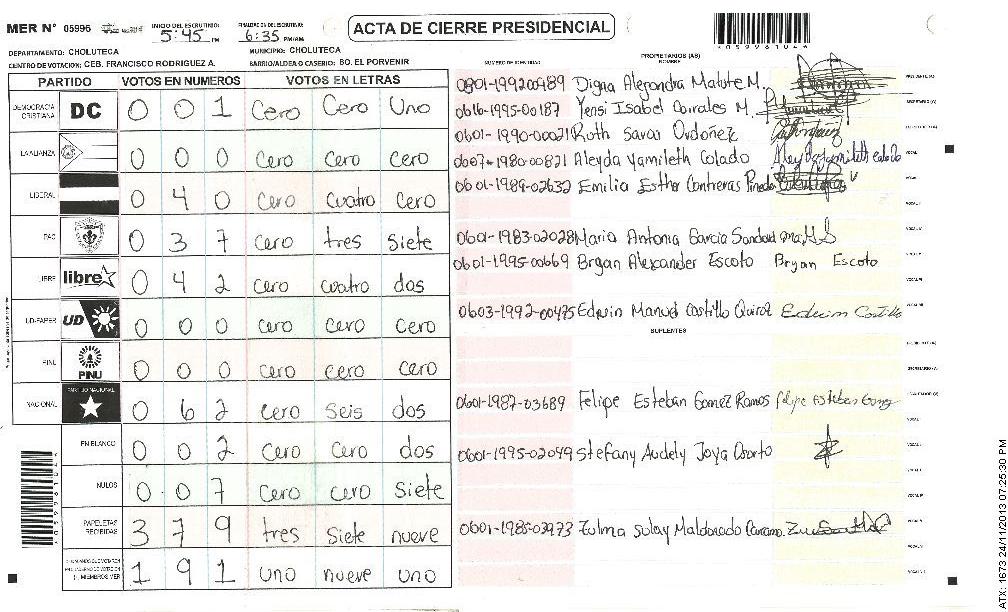 MER N° 05996 INICIO DEL ESCRUTINIO: 5:45 PM FINALIZACIÓN DEL ESCRUTINIO: 6:35 PM/AM ACTA DE CIERRE PRESIDENCIAL
DEPARTAMENTO: CHOLUTECA MUNICIPIO: CHOLUTECA
CENTRO DE VOTACION: CEB. FRANCISCO RODRIGUEZ A. BARRIO/ALDEA O CASERIO: BO. EL PORVENIR
PARTIDO VOTOS EN NUMEROS VOTOS EN LETRAS
DEMOCRACIA CRISTIANA DC 0 0 1 Cero Cero Uno
LA ALIANZA 0 0 0 cero cero cero
LIBERAL 0 4 0 cero cuatro cero
PAC 0 3 7 cero tres siete
LIBRE libre 0 4 2 cero cuatro dos
UD-FAPER UD 0 0 0 cero cero cero
PINU PINU 0 0 0 cero cero cero
NACIONAL PARTIDO NACIONAL 0 6 2 cero seis dos
EN BLANCO 0 0 2 cero cero dos
NULOS 0 0 7 cero cero siete
PAPELETAS RECIBIDAS 3 7 9 tres siete nueve
1 9 1 uno nueve uno
NUMERO DE IDENTIDAD PROPIETARIOS (AS)
NOMBRE
Digna Alejandra Matute M.
0616-1995-00187 Yensi Isabel Corrales M.
0601-1990-00021 Ruth Sarai Ordoñez
0607-1980-00821 Aleyda Yamileth Colado
0601-1989-02632 Emilia Esther Contreras Pineda
0601-1983-02028 Maria Antonia Garcia Sandoval
0601-1995-00669 Bryan Alexander Escoto Bryan Escoto
0603-1992-00475 Edwin Manuel Castillo Quiroz Edwin Castillo
SUPLENTES
0601-1987-03689 Felipe Esteban Gomez Ramos Felipe Esteban Gomez
0601-1995-02049 Stefany Audely Joya Osorto
0601-1985-03973 Zulma Suloy Maldonado
059961044
ATX: 1673 24/11/2013 07:25:30 PM